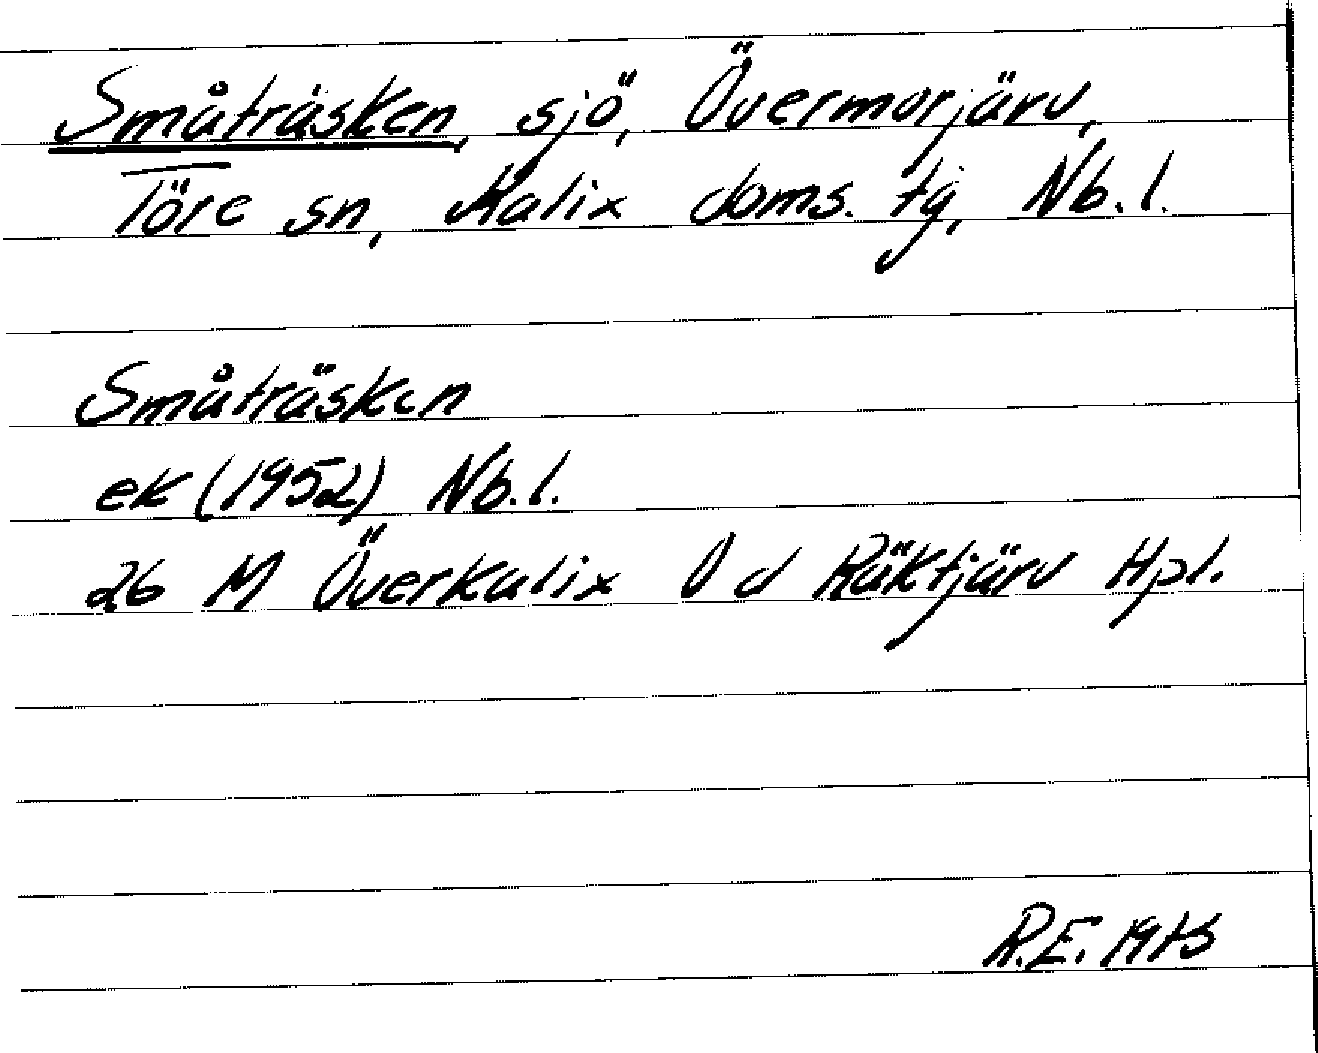 Småträsken, sjö, Övermorjärv,
Töre sn, Kalix doms. tg, Nb.l.
Småträsken
ek (1952) Nb.l.
26 M Överkalix O d Räktjärv Hpl.
R.E.